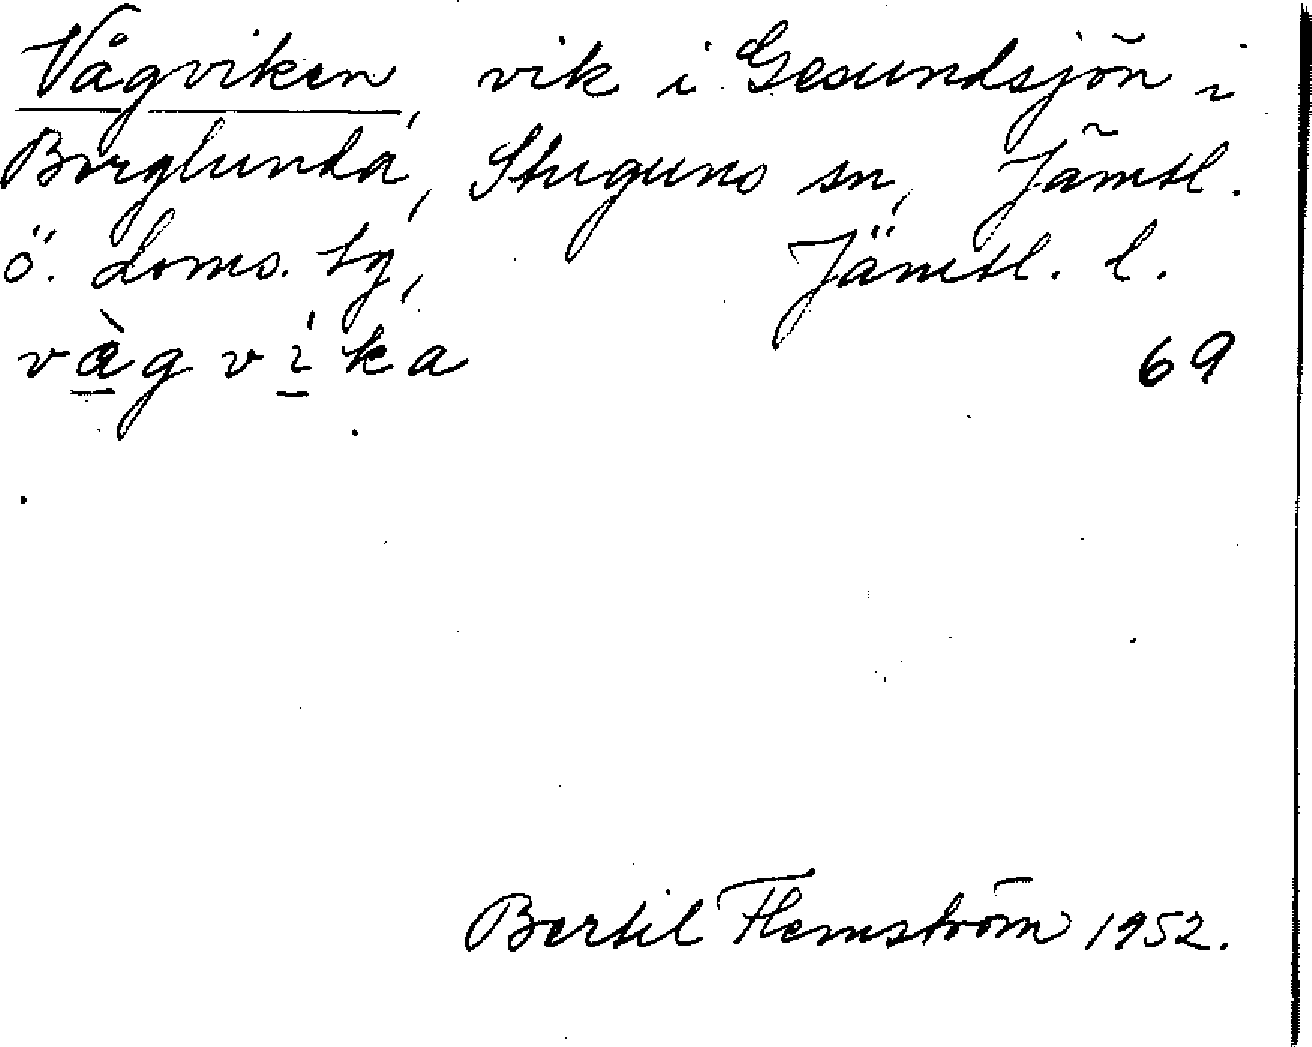 Vågviken, vik i Gesundsjön i
Borglunda, Stuguns sn, Jämtl.
ö. doms. tg, Jämtl. l.
vàgvíka 69
Bertil Flemström 1952.